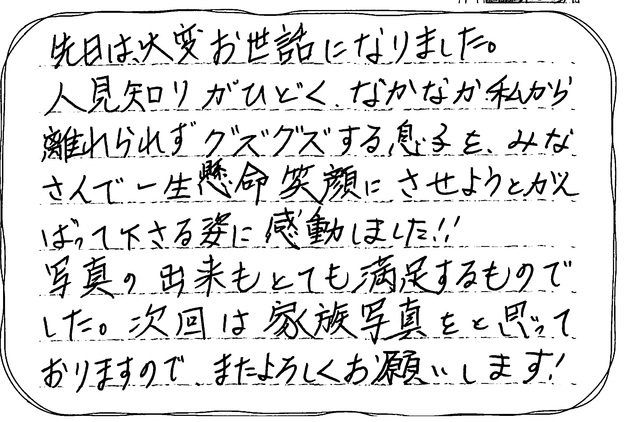 先日は、大変お世話になりました。
人見知りがひどく、なかなか私から
離れられずグズグズする息子を、みな
さんで一生懸命笑顔にさせようとがん
ばって下さる姿に感動しました!!
写真の出来もとても満足するもので
した。次回は家族写真をと思って
おりますので、またよろしくお願いします!